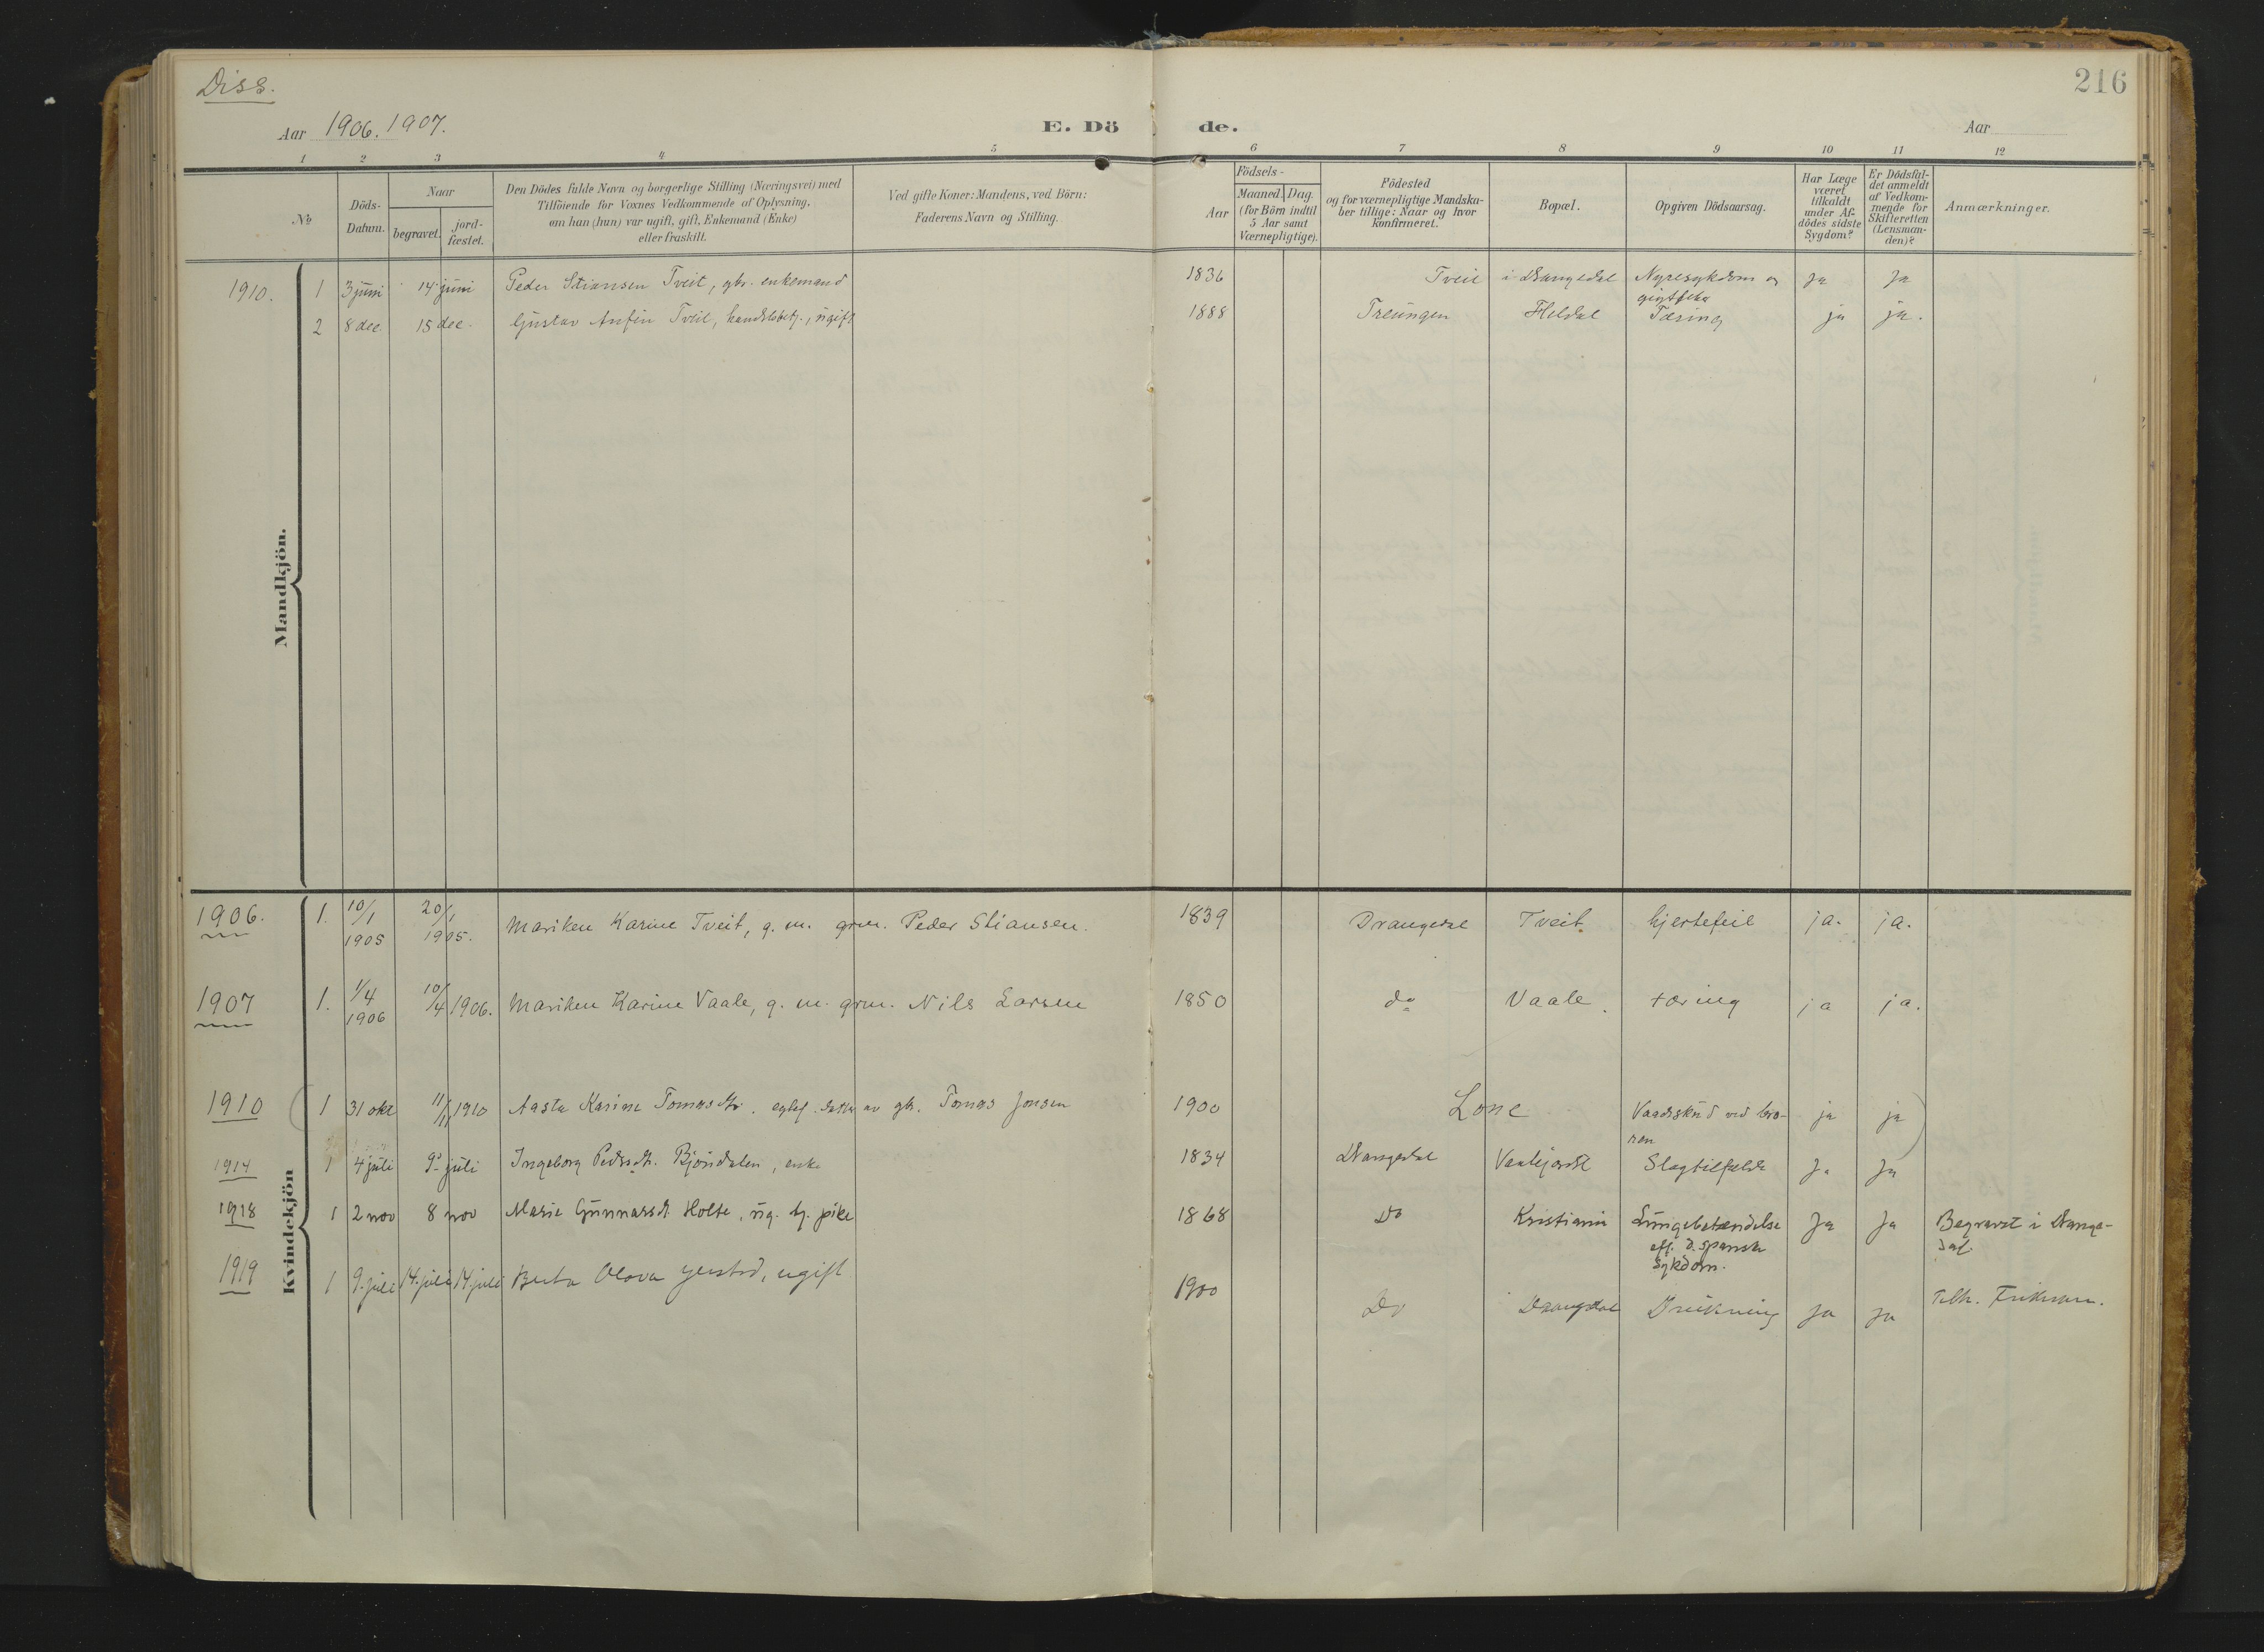 Diss.
216
Aar 1906. 1907.
E. Dö de.
Aar
1 2 3 4 5 6 7 8 9 10 11 12
No
Döds-Datum.
Naar
begravet.
jord-fæstet.
Den Dödes fulde Navn og borgerlige Stilling (Næringsvei) med
Tilföiende for Voxnes Vedkommende af Oplysning,
om han (hun) var ugift, gift, Enkemand (Enke)
eller fraskilt.
Ved gifte Koner: Mandens, ved Börn:
Faderens Navn og Stilling.
Födsels-
Aar
Maaned. Dag.
(for Börn indtil
5 Aar samt
Værnepligtige).
Födested
og for værnepligtige Mandska-
ber tillige: Naar og hvor
konfirmeret.
Bopæl.
Opgiven Dödsaarsag.
Har Læge
været
tilkaldt
under Af-
dödes sidste
Sygdom?
Er Dödsfal-
det anmeldt
af Vedkom-
mende for
Skifteretten
(Lensman-
den)?
Anmærkninger.
1910. 1 3 juni 14 juni Peder Stiansen Tveit, gbr. enkemand 1836 Tveit i Drangedal Nyresykdom og Ja Ja
gigtfeber
2 8 dec 15 dec. Gustav Anfin Tveit, handelsbetj., ugift 1888 Treungen Heldal Tæring ja ja.
Mandkjön.
1906. 1. 10/1 1905 20/1 1905. Mariken Karine Tveit, g. m. grm. Peder Stiansen. 1839 Drangedal Tveit. hjertefeil ja. ja.
1907 1. 1/4 1906 10/4 1906. Mariken Karine Vaale, g. m. grm. Nils Larsen 1850 do Vaale. tæring ja ja.
1910 (1 31 okt 11/11 1910 Aasta Karine Tomasdtr. egtef. datter av gbr. Tomas Jonsen 1900 Lone Vaadeskud ved bro-
ren ja ja)
1914 1 4 juli 9 juli Ingeborg Pedersdt. Bjöndalen, enke 1834 Drangedal Slagtilfelde Ja Ja
1918 1 2 nov 8 nov Marie Gunnarsdt. Holte, ug. tj. pike 1868 Do Kristiania Lungebetændelse Ja Ja Begravet i Drange-
eft. d. spanske dal.
sykdom.
1919 1 9. juli 14. juli 14 juli Berta Olava Gjerstad, ugift 1900 Do Drangedal Drukning Ja Ja Tilh. Frikirken.
Kvindekjön